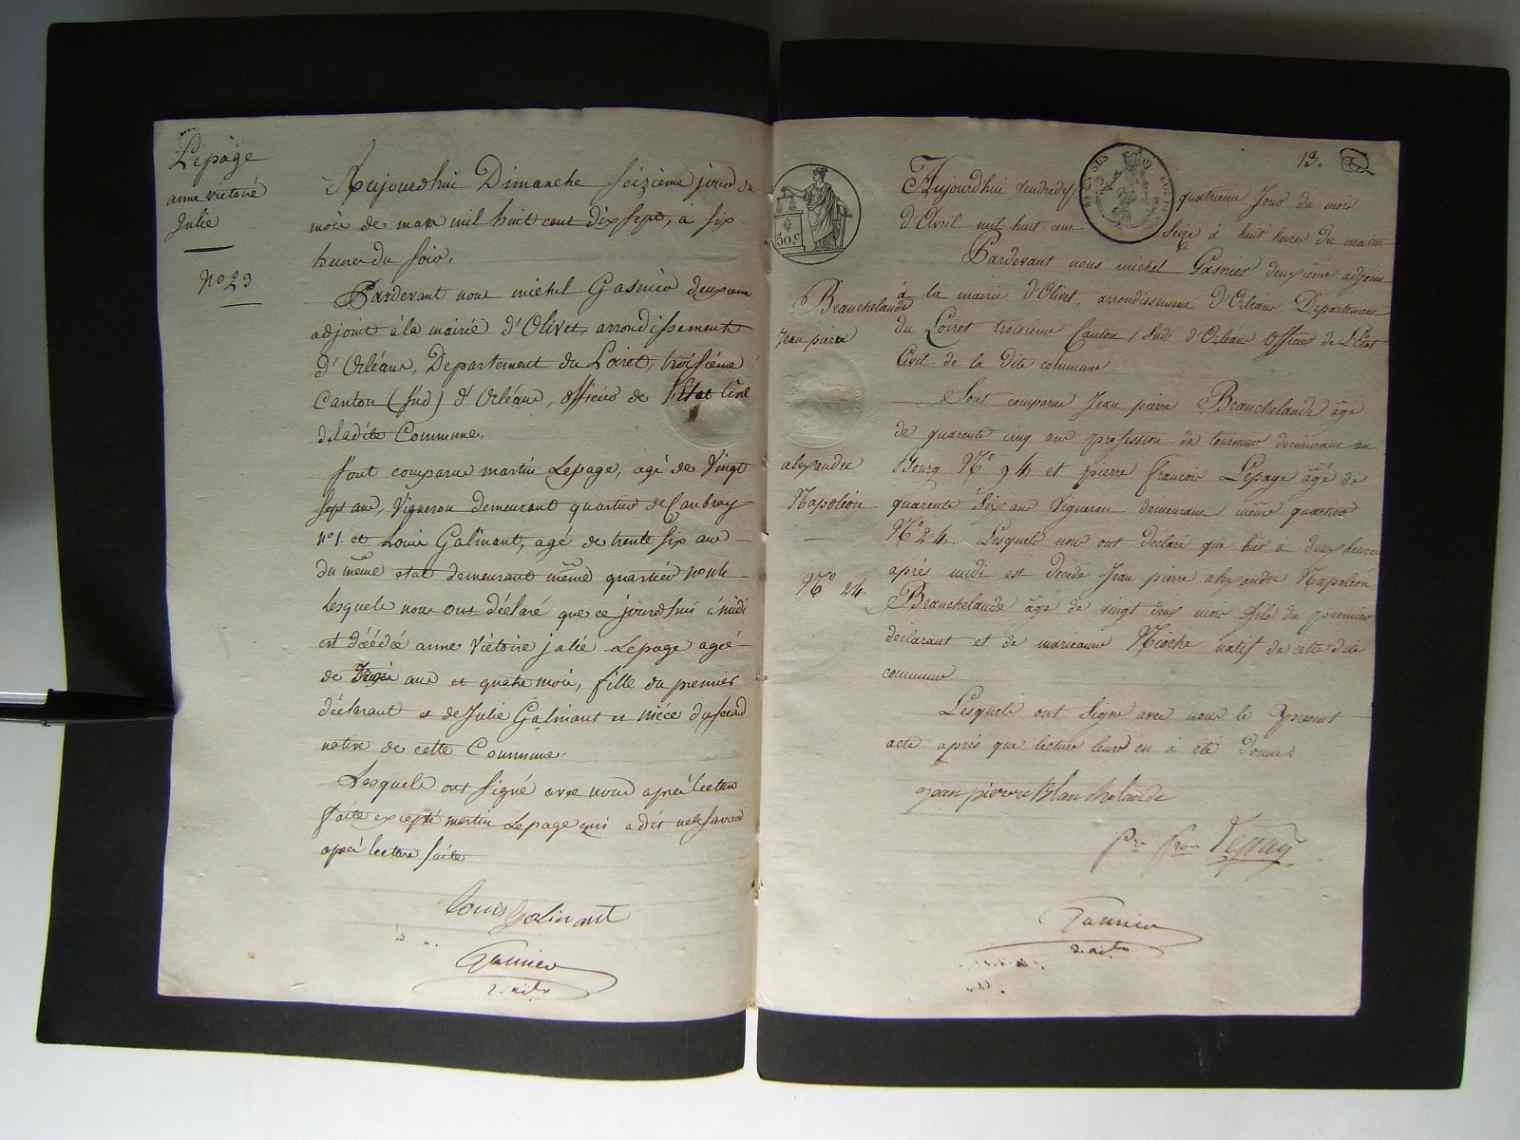 Lepage
anne victoire
Julie
No 23
Aujourdhui Dimanche seizieme jour du
mois de mars mil huit cent dix sept, à six
heures du soir.
Pardevant nous michel Gasnier deuxieme
adjoint à la mairie d'Olivet, arrondissement
d'Orléans, Departement du Loiret, troisième
Canton (sud) d'Orléans, officier de l'Etat Civil
deladite Commune.
Sont comparus martin Lepage, agé de Vingt
sept ans, Vigneron demeurant quartier de Caubray
no 1. et Louis Galinant, agé de trente six ans
du même etat demeurant même quartier
Lesquels nous ont déclaré que ce jourdhui à midi
est décédé anne Victoire julie Lepage agée
de ans et quatre mois, fille du premier
déclarant et de Julie Galinant et niéce du second
native de cette Commune.
Lesquels ont signé avec nous après lecture
faite excepté martin Lepage qui a dit ne le savoir
après lecture faite
Louis Galinant
Gasnier
2. adjt
13.
30 c
Aujourdhui vendredy quatrieme Jour du mois
d'Avril mil huit cent Seize à huit heures du matin
Pardevant nous michel Gasnier deuxieme adjoint
à la mairie d'Olivet, arrondissement d'Orleans Departement
du Loiret troisieme Canton, Sud d'Orleans officier de l'Etat
Civil de la Dite commune
Beauchelande
Jean pierre
alexandre
Napoléon
No 24
Sont comparus Jean pierre Beauchelande âgé
de quarente cinq ans profession de tourneur demeurant au
Bourg No 94 et pierre francois Lepage âgé de
quarente Six ans Vigneron demeurant même quartier
No 24. Lesquels nous ont declaré que hier à deux heures
après midi est decede Jean pierre alexandre Napoléon
Beauchelande âgé de vingt deux mois fils du premier
déclarant et de marianne natif de cette dite
commune
Lesquels ont Signé avec nous le present
acte après que lecture leur en à été donnée
jean pierre Blanchelande
pre fran Lepage
Gasnier
2. adjt